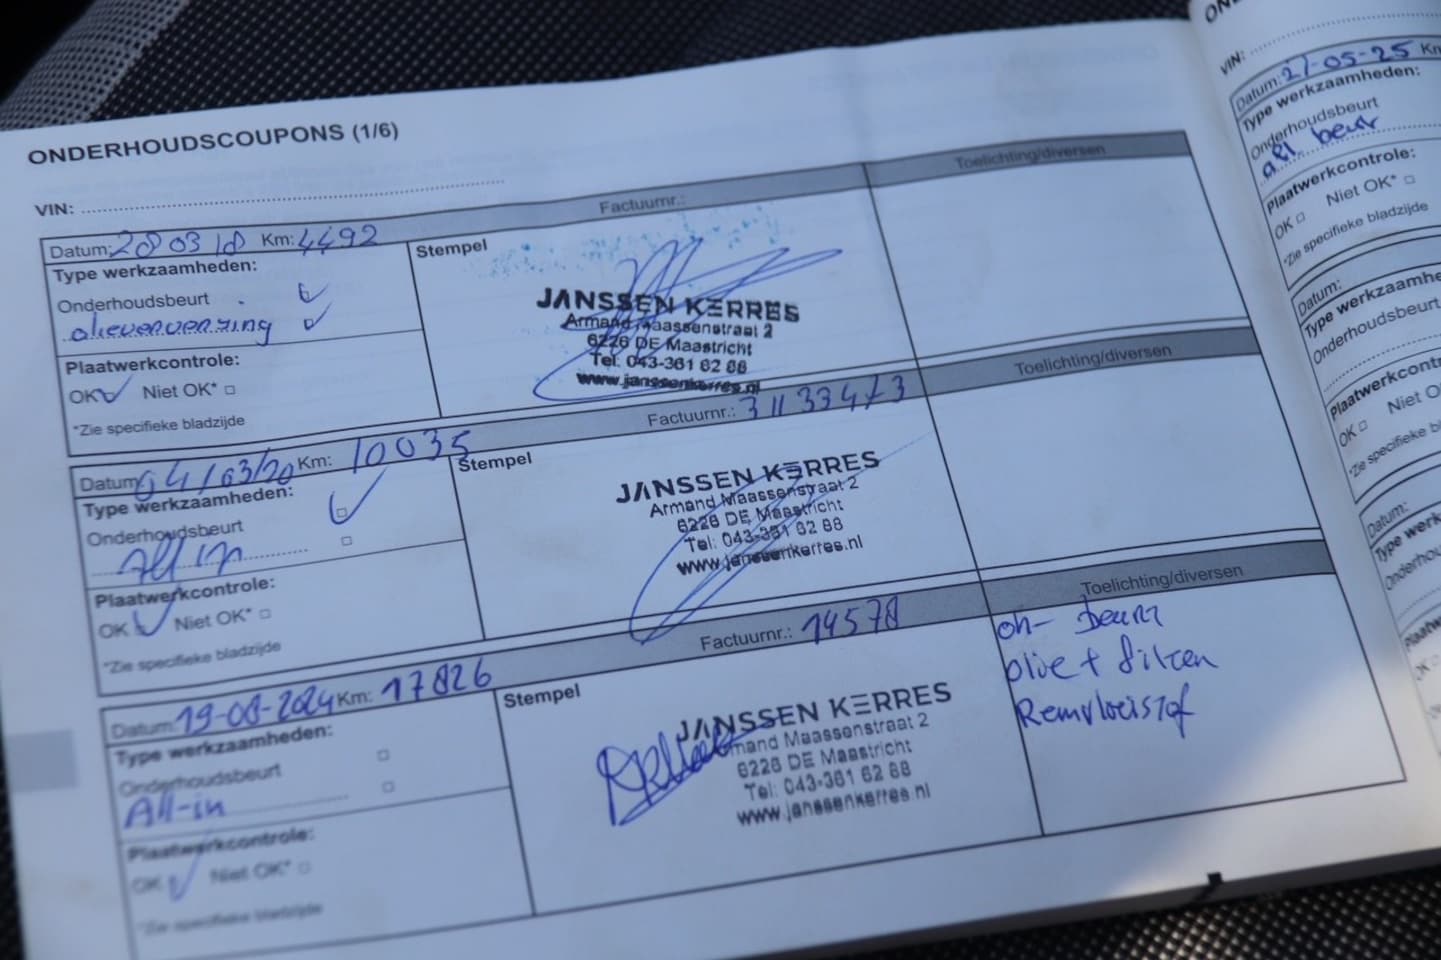 ONDERHOUDSCOUPONS (1/6)
VIN:
Factuurnr.:
Toelichting/diversen
Datum: 28 03 18 Km: 4492
Stempel
Type werkzaamheden:
Onderhoudsbeurt
olieverversing
Plaatwerkcontrole:
OK Niet OK*
*Zie specifieke bladzijde
JANSSEN KERRES
Armand Maassenstraat 2
6226 DE Maastricht
Tel: 043-361 62 88
www.janssenkerres.nl
Factuurnr.: 31133473
Toelichting/diversen
Datum 04/03/20 Km: 10035
Stempel
Type werkzaamheden:
Onderhoudsbeurt
All in
Plaatwerkcontrole:
OK Niet OK*
*Zie specifieke bladzijde
JANSSEN KERRES
Armand Maassenstraat 2
6226 DE Maastricht
Tel: 043-361 62 88
www.janssenkerres.nl
Factuurnr.: 14578
Toelichting/diversen
Datum: 19-08-2024 Km: 17826
Stempel
Type werkzaamheden:
Onderhoudsbeurt
All-in
Plaatwerkcontrole:
OK Niet OK*
*Zie specifieke bladzijde
JANSSEN KERRES
Armand Maassenstraat 2
6226 DE Maastricht
Tel: 043-361 62 88
www.janssenkerres.nl
oh- beurt
olie + filter
Remvloeistof
VIN:
Datum: 27-05-25 Km
Type werkzaamheden:
Onderhoudsbeurt
beur
Plaatwerkcontrole:
OK Niet OK*
*Zie specifieke bladzijde
Datum:
Type werkzaamhe
Onderhoudsbeurt
Plaatwerkcontr
OK Niet O
*Zie specifieke bl
Datum:
Type werk